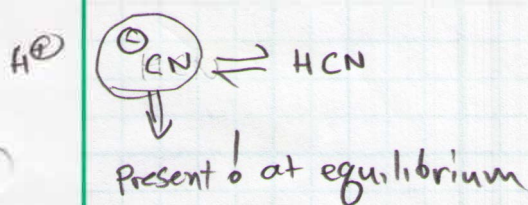 H⊕ ⊖CN ⇌ HCN
Present ! at equilibrium